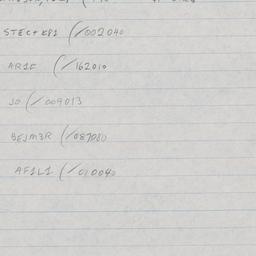 STEC+KP1 (/002040
AR1F (/162010
JO (/009013
BEJM3R (/087080
AF1L1 (/010040